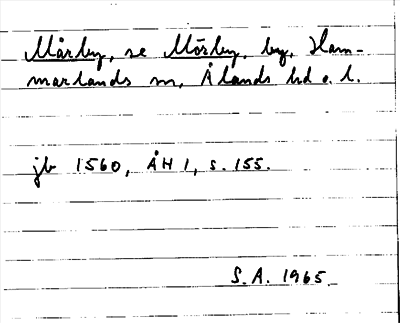 Mårby, se Mörby, by, Ham-
marlands sn, Ålands hd o. l.
jb 1560, ÅH 1, s. 155.
S.A. 1965